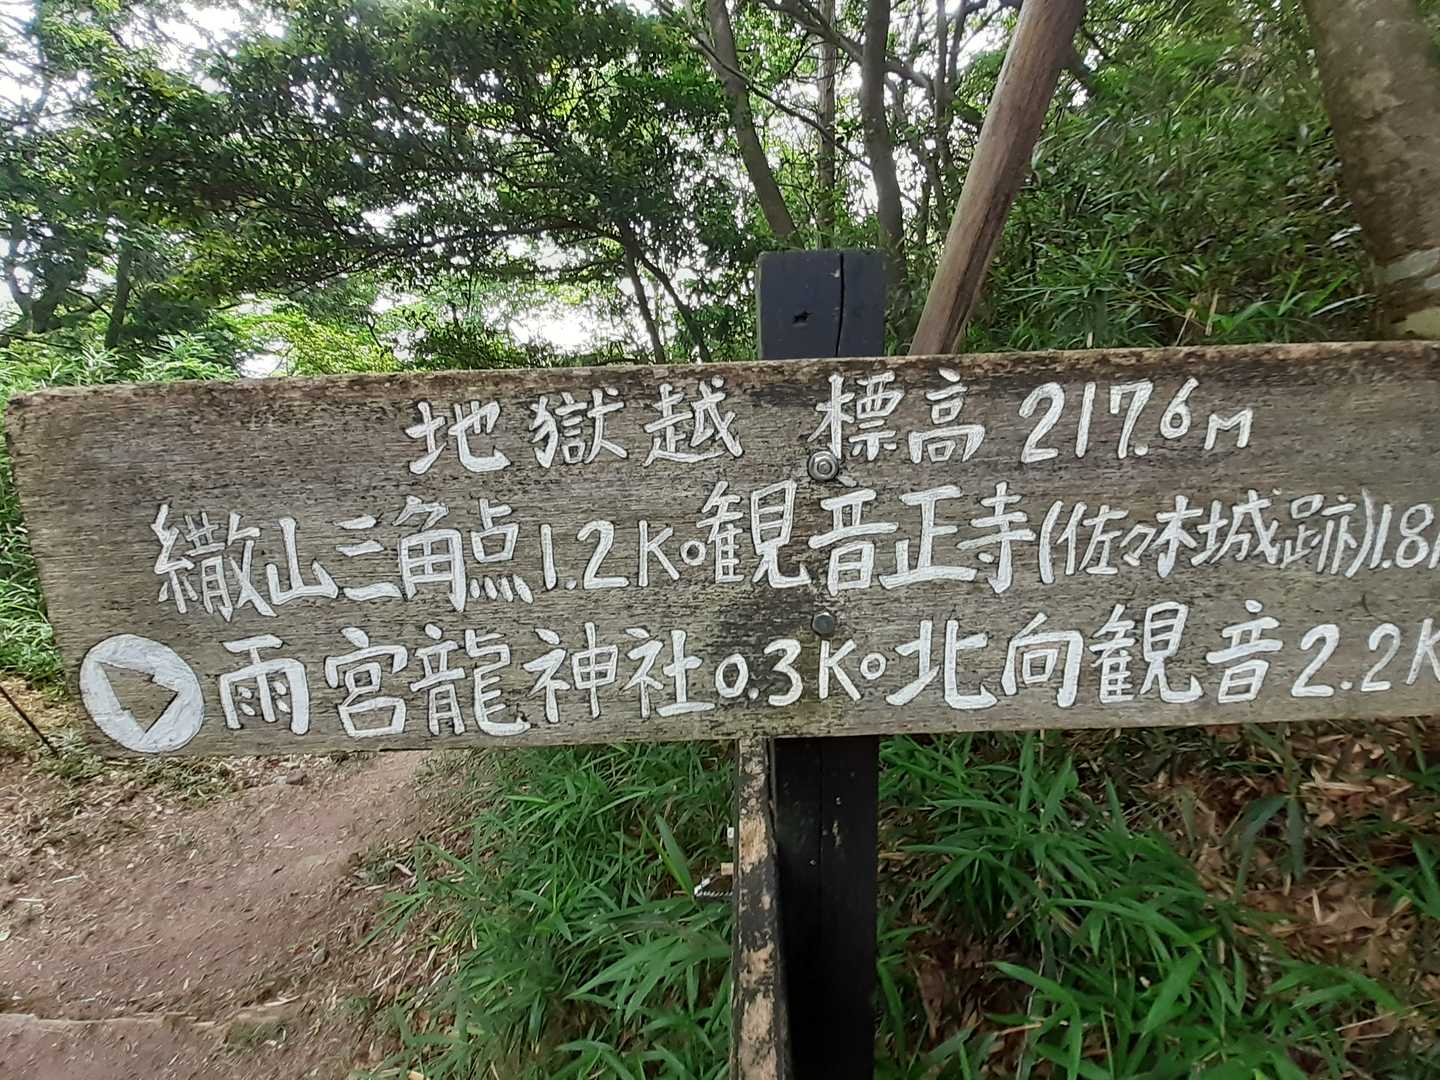 地獄越 標高 217.6m
繖山三角点1.2K。観音正寺(佐々木城跡)1.8K
雨宮龍神社0.3K。北向観音2.2K